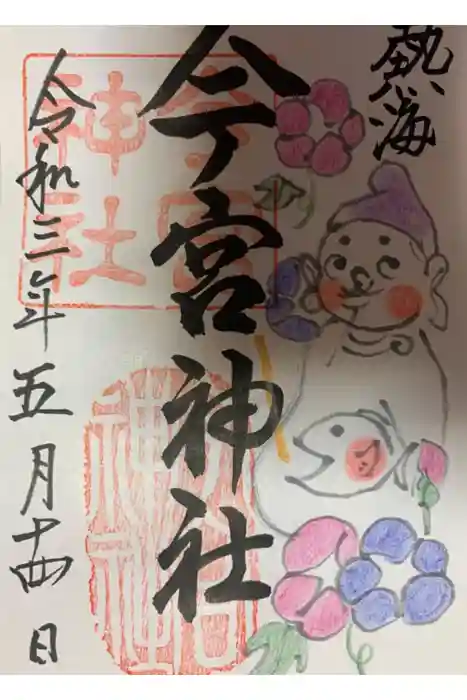 熱海
今宮神社
令和三年五月十四日
今宮
神社